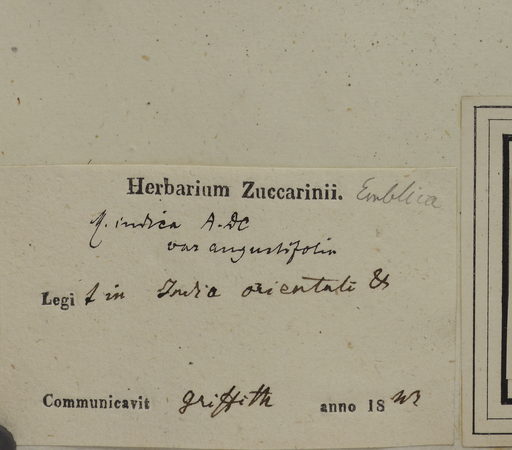 Herbarium Zuccarinii. Emblica
M. indica A. DC
var angustifolia
Legi t in India orientali
Communicavit Griffith anno 18